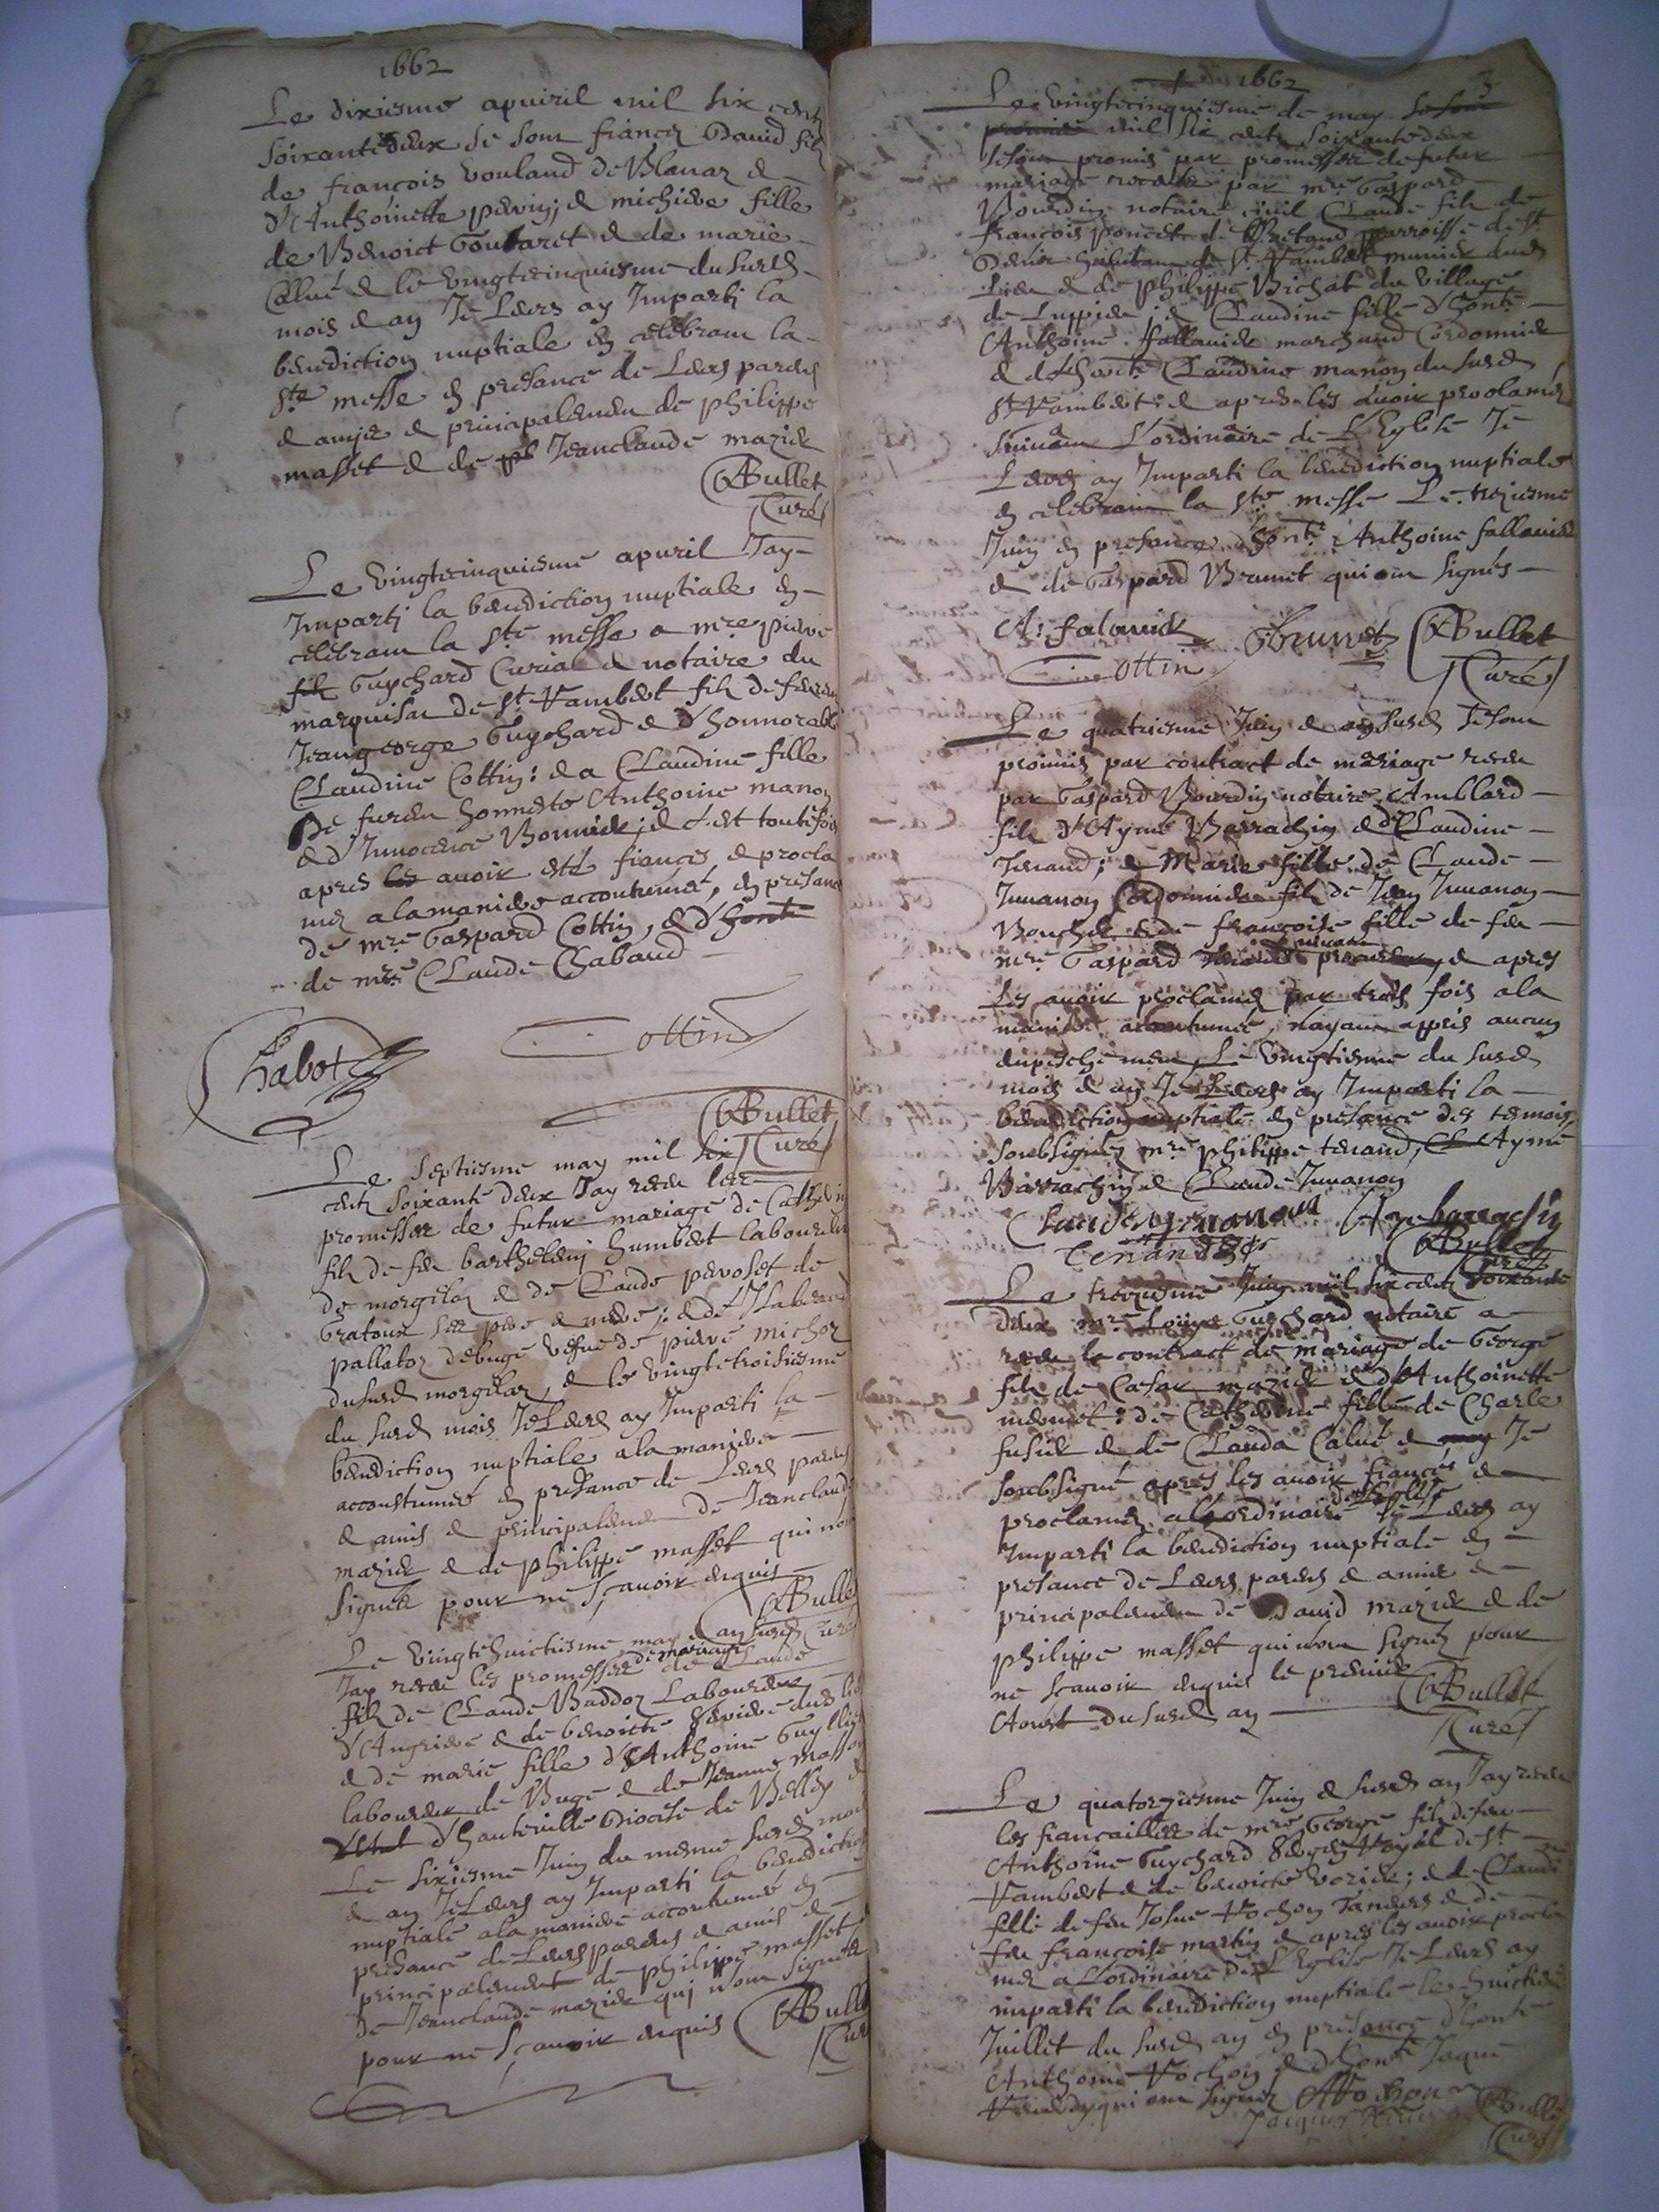 1662
Le dixiesme apuiril mil six cent
soixantedeux se sont fiancez Dauid filz
de françois vouland de Blanaz &
d'Anthoinette perrin; & michiere fille
de Benoict Goutaret & de marie
Calué & le vingtecinquiesme du susd.
mois & an Je Leurs ay Imparti la
benediction nuptiale en celebrant la
ste messe en presance de Leurs parens
& amys & principalement de philippe
masset & de Jeanclaude mazick
Bullet
Curé
Le vingtecinquiesme apuril Jay
Imparti la benediction nuptiale en
celebrant la Ste messe a mre pierre
filz Guychard Curial & notaire du
marquisat de St Rambert filz de feu
Jeangeorge Guychard & d'honnorable
Claudine Cottin: & a Claudine fille
de honneste Anthoine manon
& d'Innocence Bonnier; & toutefois
apres les auoir esté fiances, & procla
mez alamaniere accoutumée, en presance
de mre Gaspard Cottin, & d'hont
de mre Claude Chabaud
Chabot Cottin
Bullet
Curé
Le septiesme may mil six
cent soixante deux Jay receu les
promesses de futur mariage de Catherin
filz de feu barthelemy humbert laboureur
de morgelaz & de Claude perroset de
Gratoux ses pere & mere; & d'Ysabeau
pallatoz debuge vefue de pierre michoz
dususd morgelaz, & le vingtetroisiesme
du susd mois Je Leurs ay Imparti la
benediction nuptiale alamaniere
accoustumée en presance de Leurs parens
& amis & principalement de Jeanclaude
mazick & de philippe masset qui nont
signés pour ne sçauoir enquis
Bullet
Curé
Le vingtehuictiesme may an susd
Jay receu les promesses de mariage de Claude
filz de Claude Baddoz Laboureur
d'Angrieres & de benoicte
& de marie fille d'Anthoine Guyllin
laboureur de Buge & de Jeanne masson
d'hauteuille Diocese de Belley &
Le sixiesme Juin du mesme susd mois
& an Je Leurs ay Imparti la benediction
nuptiale alamaniere accoutumée en
presance de Leurs parens & amis &
principalement de philippe masset &
de Jeanclaude mazick qui nont signés
pour ne sçauoir enquis Bullet
Curé
1662 3
Le vingtecinquiesme de may
mil six cent soixantedeux
sesont promis par promesses defutur
mariage receues par mre Gaspard
Bourdin notaire ciuil Claude filz de
francois poncet de parroisse de St
Denis habitant de St Rambert
Lieu & de philippe Bichat du village
de Luppieu; & Claudine fille d'honte
Anthoine fallauier marchand Cordonnier
& d'honte Claudine manon dususd
St Rambert: & apres les auoir proclamés
suiuant L'ordinaire de L'Eglise Je
Leurs ay Imparti la benediction nuptiale
en celebrant la ste messe Le treziesme
Juin en presance d'honte Anthoine fallauier
& de Gaspard Brunet qui ont signés
A. falauier Brunet Bullet
Cottin Curé
Le quatriesme Juin & an susd se sont
promis par contract de mariage receu
par Gaspard Bourdin notaire Amblard
filz d'Aymé Barrachin & de Claudine
Tenand; & Marie fille de Claude
Juuanon Cordonnier filz de Jean Juuanon
Boucher & de françoise fille de feu
mre Gaspard & apres
les auoir proclamés par trois fois ala
maniere accoutumée, nayant appris aucun
empeschement, Le vingtiesme du susd
mois & an Je Leurs ay Imparti la
benediction nuptiale en presance des temoins
soubsignez mre philippe tenand, Aymé
Barrachin & Claude Juuanon
Claude Juuanon Ayme barrachin
Tenand Bullet
Curé
Le treiziesme Juin mil six cent soixante
deux mre Louys Guychard notaire a
receu le contract de mariage de George
filz de Cæsar mazick & d'Anthoinette
mermet: de Catherine fille de Charle
fusier & de Clauda Calué & Je
soubsigné apres les auoir fiancés &
proclamez a L'ordinaire de l'Eglise Je Leurs ay
Imparti la benediction nuptiale en
presance de Leurs parens & amis &
principalement de Dauid mazick & de
philippe masset qui nont signéz pour
ne sçauoir enquis le premier
Aoust du susd an Bullet
Curé
Le quatorziesme Juin & susd an Jay receu
les fiancailles de mre George filz defeu
Anthoine Guychard Royal de St
Rambert & de benoicte ; & de Claudine
fille de feu Josué Rochon & de
feu françoise martin & apres les auoir procla
mez a L'ordinaire de L'Eglise Je Leurs ay
imparti la benediction nuptiale le huictiesme
Juillet du susd an en presance d'honte
Anthoine Rochon, & d'honte Jaque
qui ont signez A Rochon
Jacques Bullet
Curé